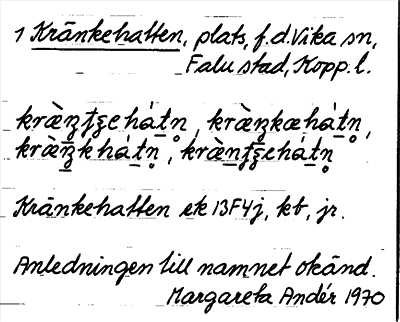 1 Kränkehatten, plats, f.d. Vika sn,
Falu stad, Kopp. l.
kræ̀ȵţʂehát̠n̥, kræ̀ȵkæhát̠n̥,
kræ̀ȵkhát̠n̥, kræ̀ntʂehát̠n̥
Kränkehatten ek 13F4j, kb, jr.
Anledningen till namnet okänd.
Margareta Andér 1970